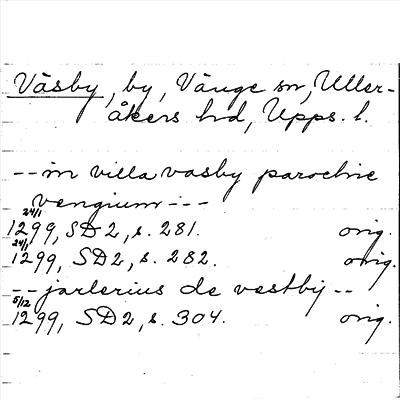 Väsby, by, Vänge sn, Uller-
åkers hd, Upps. l.
-- in villa vasby parochie
vengium ---
24/1
1299, SD 2, s. 281. orig.
24/1
1299, SD 2, s. 282. orig.
-- jarlerius de vestby --
5/12
1299, SD 2, s. 304. orig.